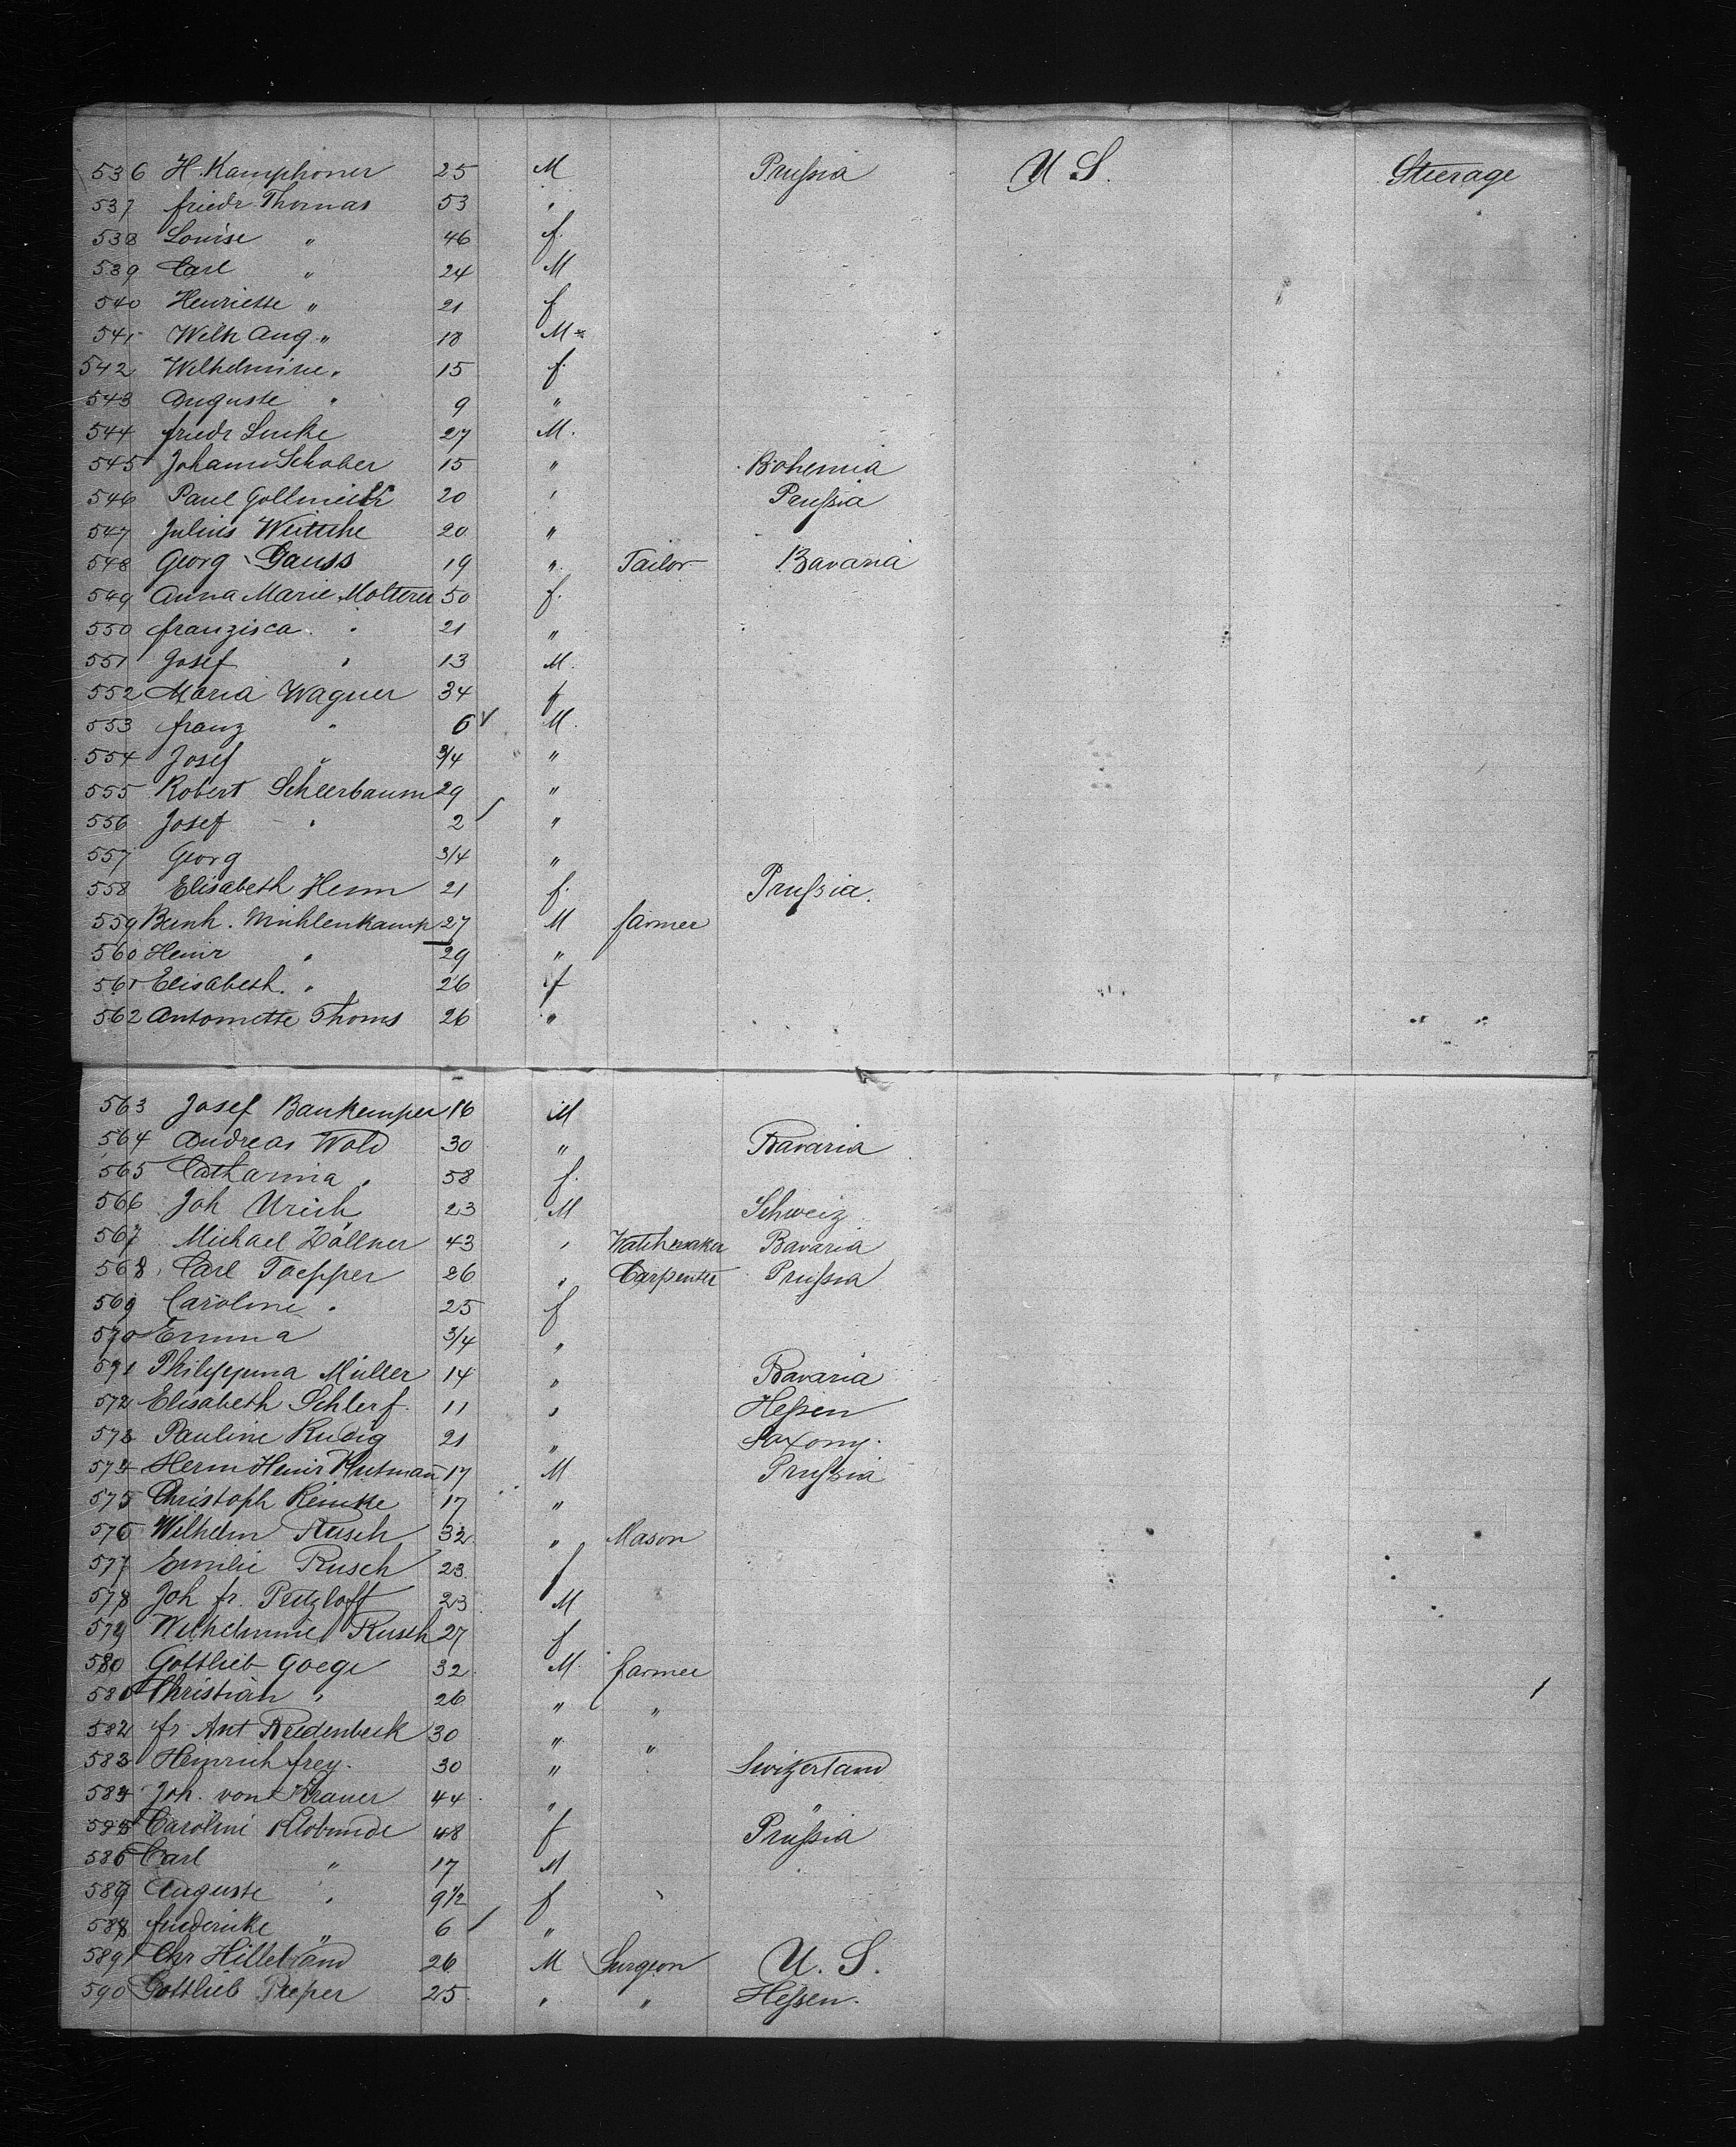 536 H. Kamphoner 25 M Prussia U S. Steerage
537 friedr Thomas 53 "
538 Louise " 46 f.
539 Carl " 24 M
540 Henriette " 21 f
541 Wilh Aug " 18 M
542 Wilhelmine " 15 f.
543 Auguste " 9 "
544 friedr Linke 27 M.
545 Johann Schober 15 " Bohemia
546 Paul 20 " Prussia
547 Julius 20 "
548 Georg Gauss 19 " Tailor Bavaria
549 Anna Marie Molterer 50 f.
550 franzisca " 21 "
551 Josef " 13 M.
552 Maria Wagner 34 f
553 franz " 6 M.
554 Josef " 3/4 "
555 Robert Scheerbaum 29 "
556 Josef " 2 "
557 Georg 3/4 "
558 Elisabeth Henn 21 f. Prussia.
559 Bernh. Mühlenkamp 27 M farmer
560 Heinr " 29 "
561 Elisabeth. " 26 f
562 Antonette Thoms 26 "
563 Josef Bankemper 16 M
564 Andreas Wold 30 " Bavaria
565 Catharina " 58 f.
566 Joh Urich 23 M Schweiz
567 Michael Zöllner 43 " Watchmaker Bavaria
568 Carl Toepper 26 " Carpenter Prussia
569 Caroline " 25 f
570 Emma 3/4 "
571 Philippina Müller 14 " Bavaria
572 Elisabeth Schlerf. 11 " Hessen
573 Pauline Rudig 21 " Saxony.
574 Herm Heinr 17 M Prussia
575 Christoph Reinke 17 "
576 Wilhelm Rusch 32 " Mason
577 Emilie Rusch 23 f
578 Joh fr. Pritzloff 23 M
579 Wilhelmine Rusch 27 f
580 Gottlieb Goege 32 M. farmer
581 Christian " 26 " "
582 fr. Ant Bredenbeck 30 " "
583 Heinrich frey. 30 " Switzerland
584 Joh. von Krauer 44 " "
585 Caroline Klobunde 48 f Prussia
586 Carl " 17 M
587 Auguste " 9 1/2 f
588 friederike " 6 "
589 Chr Hillebrand 26 M Surgeon U. S.
590 Gottlieb Pieper 25 " " Hessen.